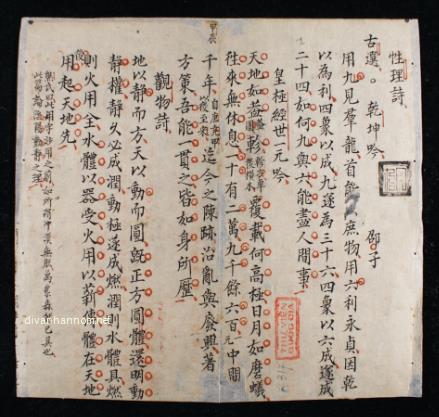 性理詩
古選。 乾坤吟 邵子
用九見羣龍首能出庶物用六利永貞因乾
以為利四象以成九遂為三十六四象以六成遂成
二十四如何九與六能盡人間事
皇極經世一元吟
天地如蓋軫覆載何高極日月如磨蟻
往來無休息一十有二萬九千餘六百中間
千年迄今之陳跡治亂與廢興著
方策吾能一貫之皆如身所歷
觀物詩
地以靜而方天以動而圓既正方圓體還明動
靜權靜久必成潤動極遂成燃潤則水體具燃
則火用全水體以器受火用以薪傳體在天地
後用起天地先
熊氏曰此用字 用之前如所謂沖漠無朕萬象森然已具也
此篇論陰陽動靜之理
甲辰
THƯ VIỆN
QUỐC GIA
divanhannom.net
divanhannom.net